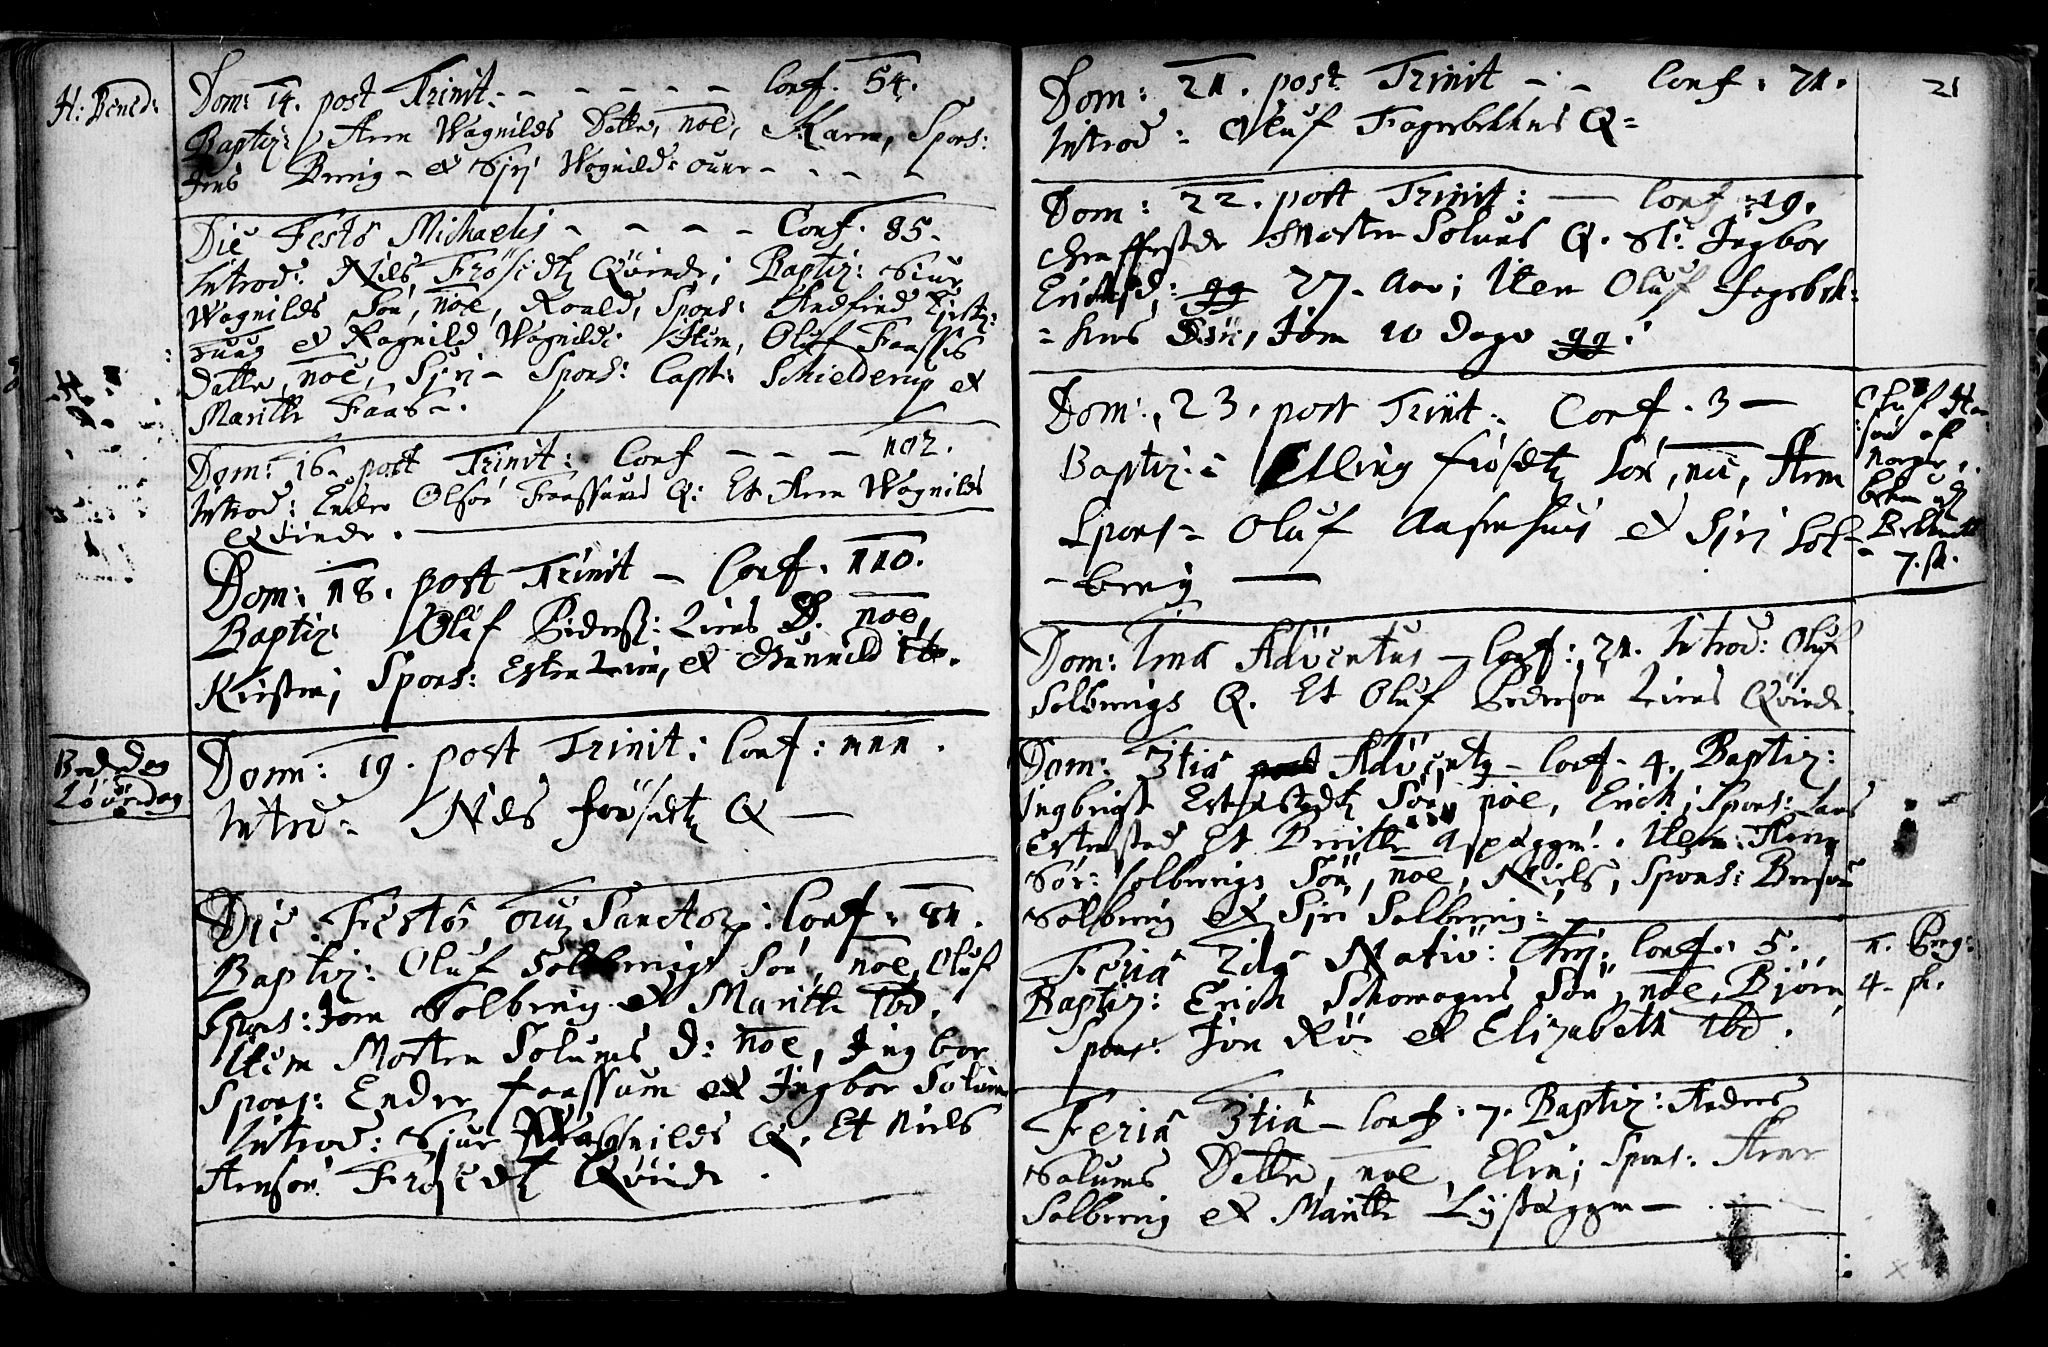 H: Bened:
Dom: 14. post Trinit: - - - - - Conf. 54.
Baptiz: Aren Wagnilds Datter, noe, Karen, Spons:
Jens Bering - et Sirj Wognild: ouer - - - -
Die Festo Michaelis - - - - Conf. 85-
Introd: Niels Frösedtz Qvinde; Baptiz: Siur
Wagnilds Sön, noe, Roald, Spons: Andfind
et Ragnild Wagnild: Item, Oluf Faassis
Datter, noe, Sjri - Spons: Capt: Schielderup et
Maritte Faas-.
Dom: 16. post Trinit: Conf - - - 102.
Introd: Ender Olsön Faassums Q: Et Aren Wagnilds
Qvinde.
Dom: 18. post Trinit - Conf. 110.
Baptiz: Oluf Pederss: Liens D. noe,
Kirsten; Spons: Esten Lien, et Gunnild
Beddedag
Löverdag
Dom: 19. post Trinit: Conf: 111.
Introd: Niels Frösetz Q —
Die Festo Sanctor: Conf: 81.
Baptiz: Oluf Solberrigs Sön, noe, Oluf
Spons: Jon Solberrig et Maritte Ibd.
Item Morten Solums D: noe, Ingbor
Spons: Ender Faassum et Ingbor Solum
Introd: Sjur Wagnilds Q. Et Niels
Arensön Frösedtz Qvinde.
21
Dom: 21. post Trinit - - Conf: 71.
Introd: Oluf Fagerbekkens Q=
Dom: 22. post Trinit: — Conf: 19.
Morten Solums Q. Sl: Ingbor
Erichsd: gg 27. Aar; Item Oluf Fagerbek=
= kens Sön, Jon 10 Dage gg.
Dom: 23. post Trinit: Conf. 3 —
Baptiz: Elling Frösedtz Sön, noe, Aren
Spons= Oluf Aasenhuus et Sirj Sol-
- berrig —
7. sk.
Dom: Ima Adventus - Conf: 21. Introd: Oluf
Solberrigs Q. Et Oluf Pedersön Liens Qvinde.
Dom: 3tia Adventq - Conf- 4. Baptiz:
Ingbrigt Estenstedtz Sön, noe, Erich; Spons: Lars
Estenstad Et Beritte Aspeggen. Item: Aren
Sör: Solberrigs Sön, noe, Niels, Spons: Bersön
Solberrig et Sjri Solberrig:
Feria 2da Nativ: Chrj: Conf: 5.
Baptiz: Erich Schomagers Sön, noe, Björn,
Spons: Jon Rö et Elizabeth Ibd.
4. sk.
Feria 3tia - Conf: 7. Baptiz: Anders
Solums Datter, noe, Elen; Spons: Aren
Solberrig et Maritte Lysteggen — . —